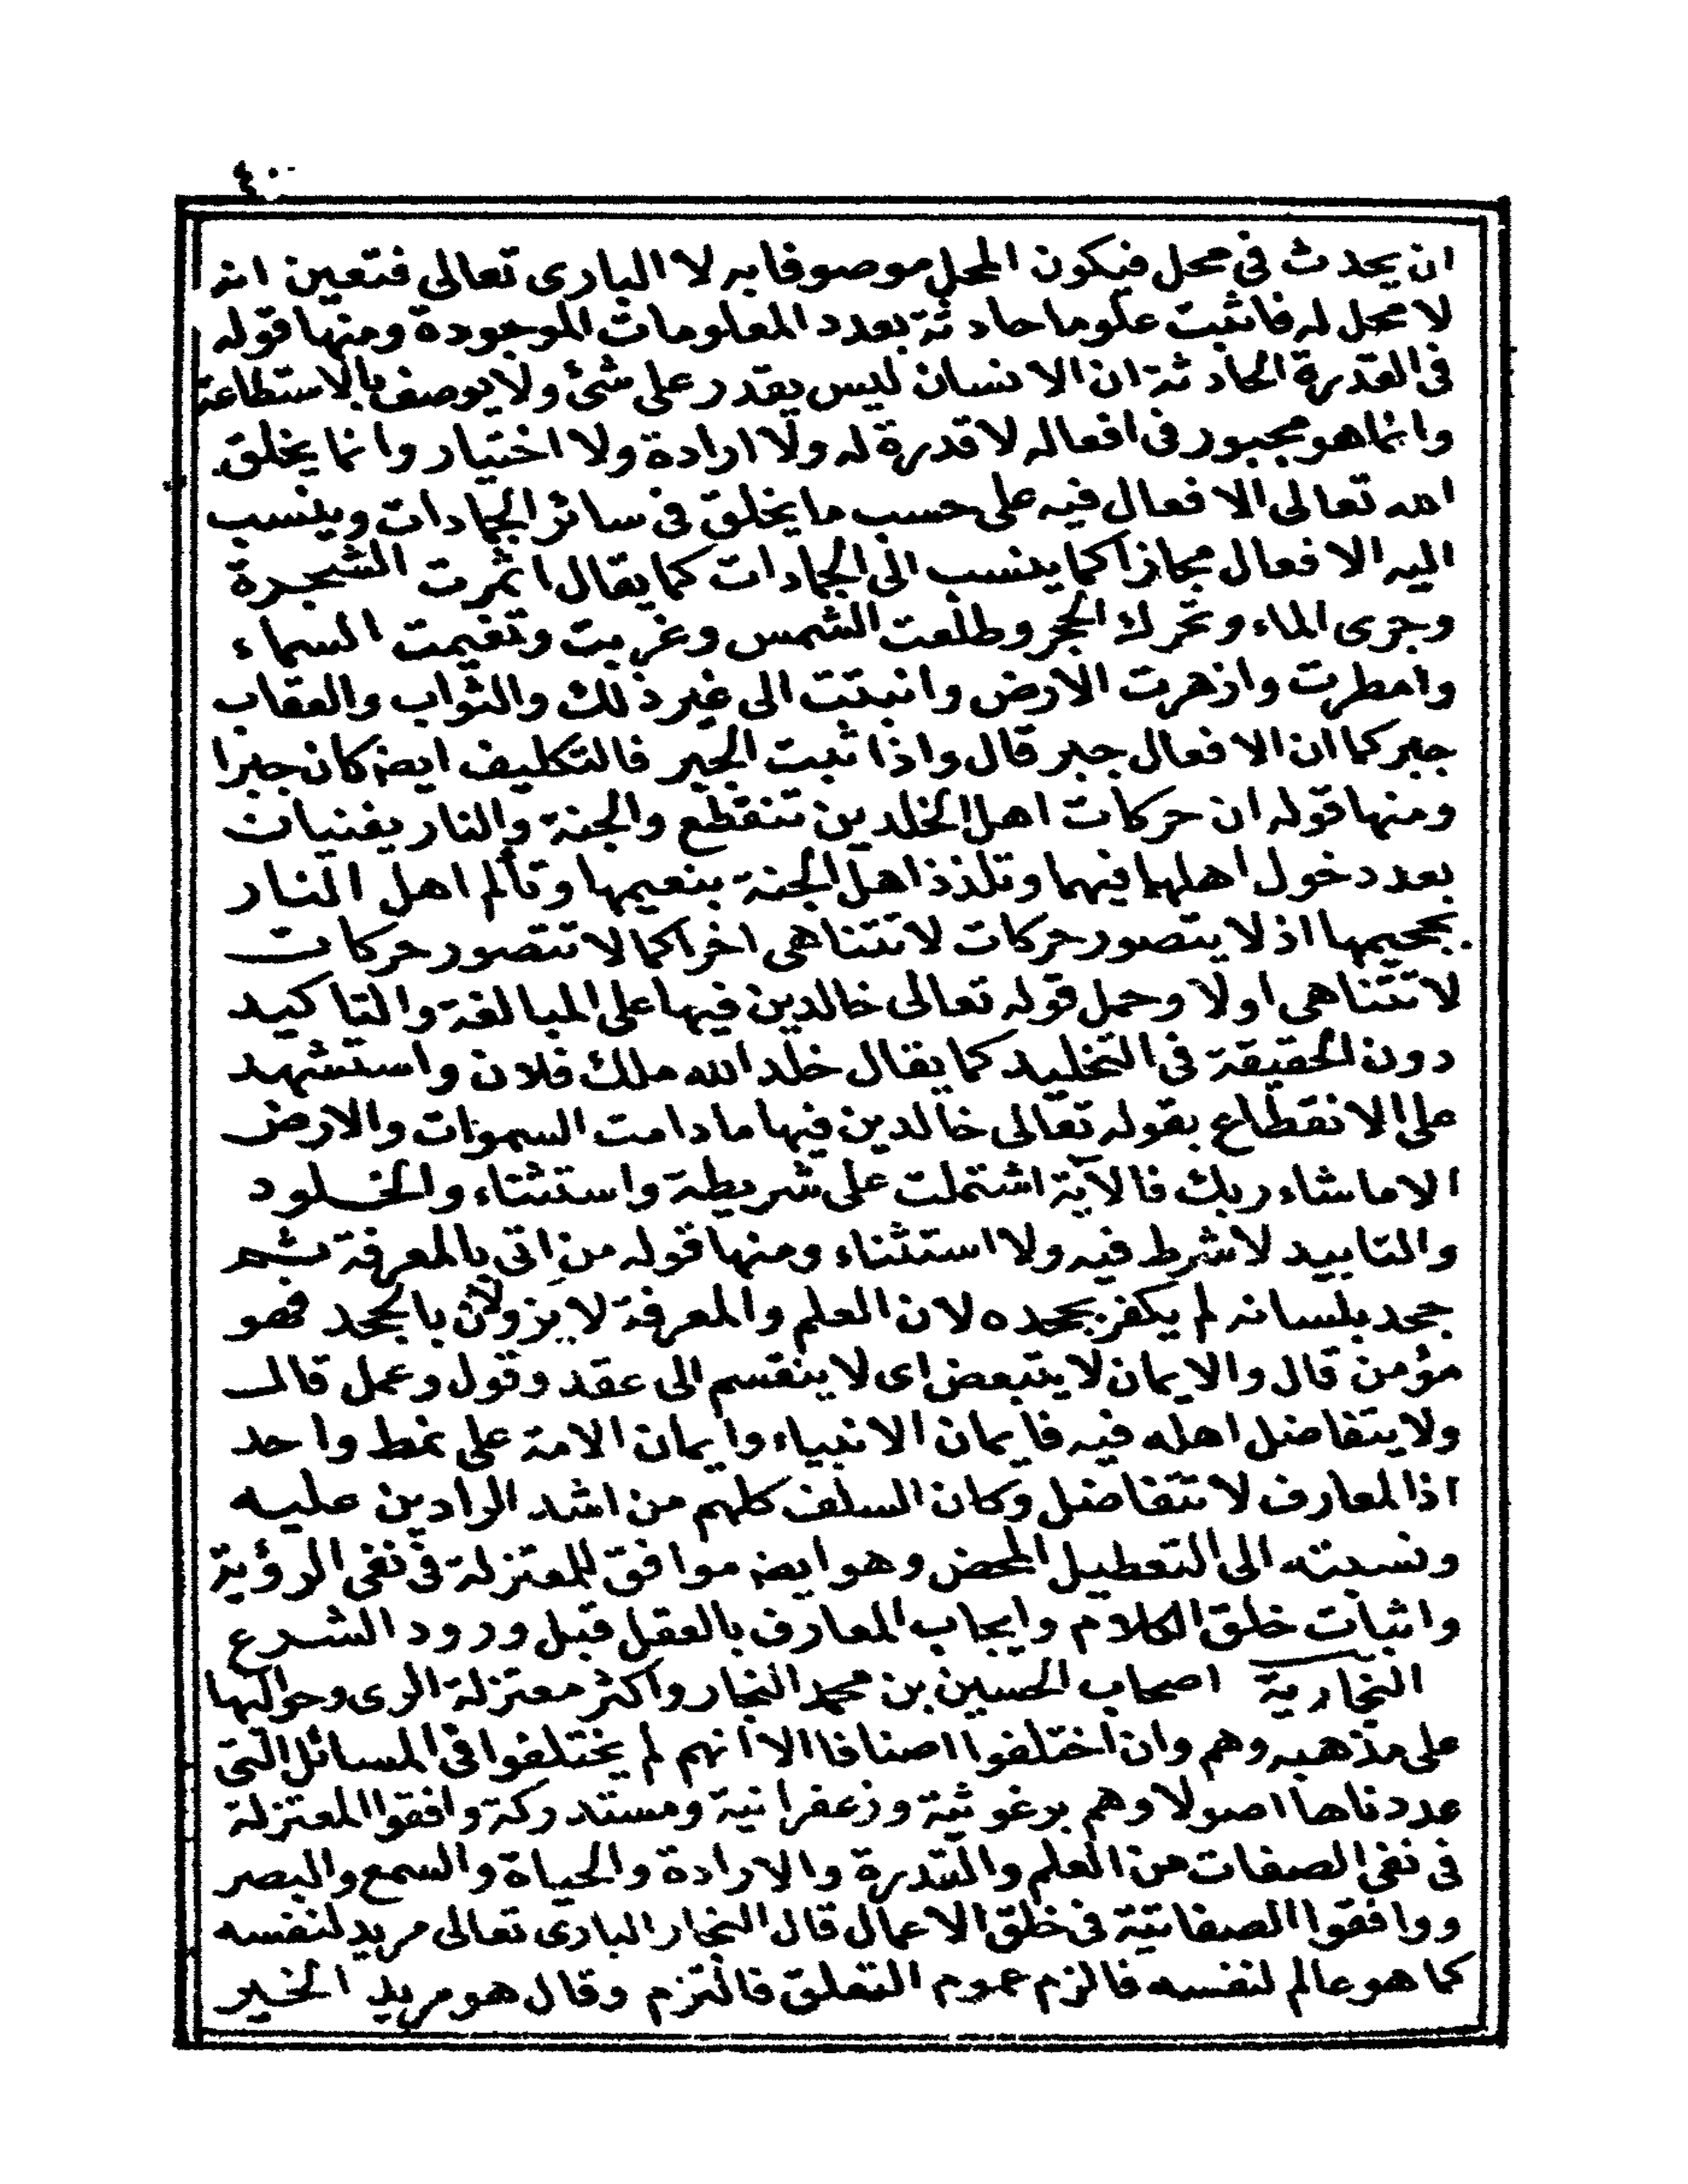 ٤٠
ان يحدث فى محل فيكون المحل موصوفا به لا البارى تعالى فتعين انه
لا محل له فاثبت علوما حادثة بعدد المعلومات الموجودة ومنها قوله
فى القدرة الحادثة ان الانسان ليس يقدر على شئ ولا يوصف بالاستطاعة
وانما هو مجبور فى افعاله لا قدرة له ولا ارادة ولا اختيار وانما يخلق
الله تعالى الافعال فيه على حسب ما يخلق فى سائر الجمادات وينسب
اليه الافعال مجازا كما ينسب الى الجمادات كما يقال اثمرت الشجرة
وجرى الماء وتحرك الحجر وطلعت الشمس وغربت وتغيمت السماء
وامطرت وازهرت الارض وانبتت الى غير ذلك والثواب والعقاب
جبر كما ان الافعال جبر قال واذا ثبت الجبر فالتكليف ايضه كان جبرا
ومنها قوله ان حركات اهل الخلدين تنقطع والجنة والنار يفنيان
بعد دخول اهلهما فيهما وتلذذ اهل الجنة بنعيمها وتألم اهل النار
بجحيمها اذ لا يتصور حركات لا تتناهى اخرا كما لا تتصور حركات
لا تتناهى اولا وحمل قوله تعالى خالدين فيها على المبالغة والتاكيد
دون الحقيقة فى التخليد كما يقال خلد الله ملك فلان واستشهد
على الانقطاع بقوله تعالى خالدين فيها ما دامت السموات والارض
الا ما شاء ربك فالآية اشتملت على شريطة واستثناء والخلود
والتابيد لا شرط فيه ولا استثناء ومنها قوله من اتى بالمعرفة ثم
جحد بلسانه لم يكفر بجحده لان العلم والمعرفة لا يزولان بالجحد فهو
مؤمن قال والايمان لا يتبعض اى لا ينقسم الى عقد وقول وعمل قال
ولا يتفاضل اهله فيه فايمان الانبياء وايمان الامة على نمط واحد
اذ المعارف لا تتفاضل وكان السلف كلهم من اشد الرادين عليه
ونسبته الى التعطيل المحض وهو ايضه موافق للمعتزلة فى نفى الرؤية
واثبات خلق الكلام وايجاب المعارف بالعقل قبل ورود الشرع
النجارية اصحاب الحسين بن محمد النجار واكثر معتزلة الرى وحواليها
على مذهبه وهم وان اختلفوا اصنافا الا انهم لم يختلفوا فى المسائل التى
عددناها اصولا وهم برغوثية وزعفرانية ومستدركة وافقوا المعتزلة
فى نفى الصفات من العلم والقدرة والارادة والحياة والسمع والبصر
ووافقوا الصفاتية فى خلق الاعمال قال النجار البارى تعالى مريد لنفسه
كما هو عالم لنفسه فالزم عموم التعلق فالتزم وقال هو مريد الخير